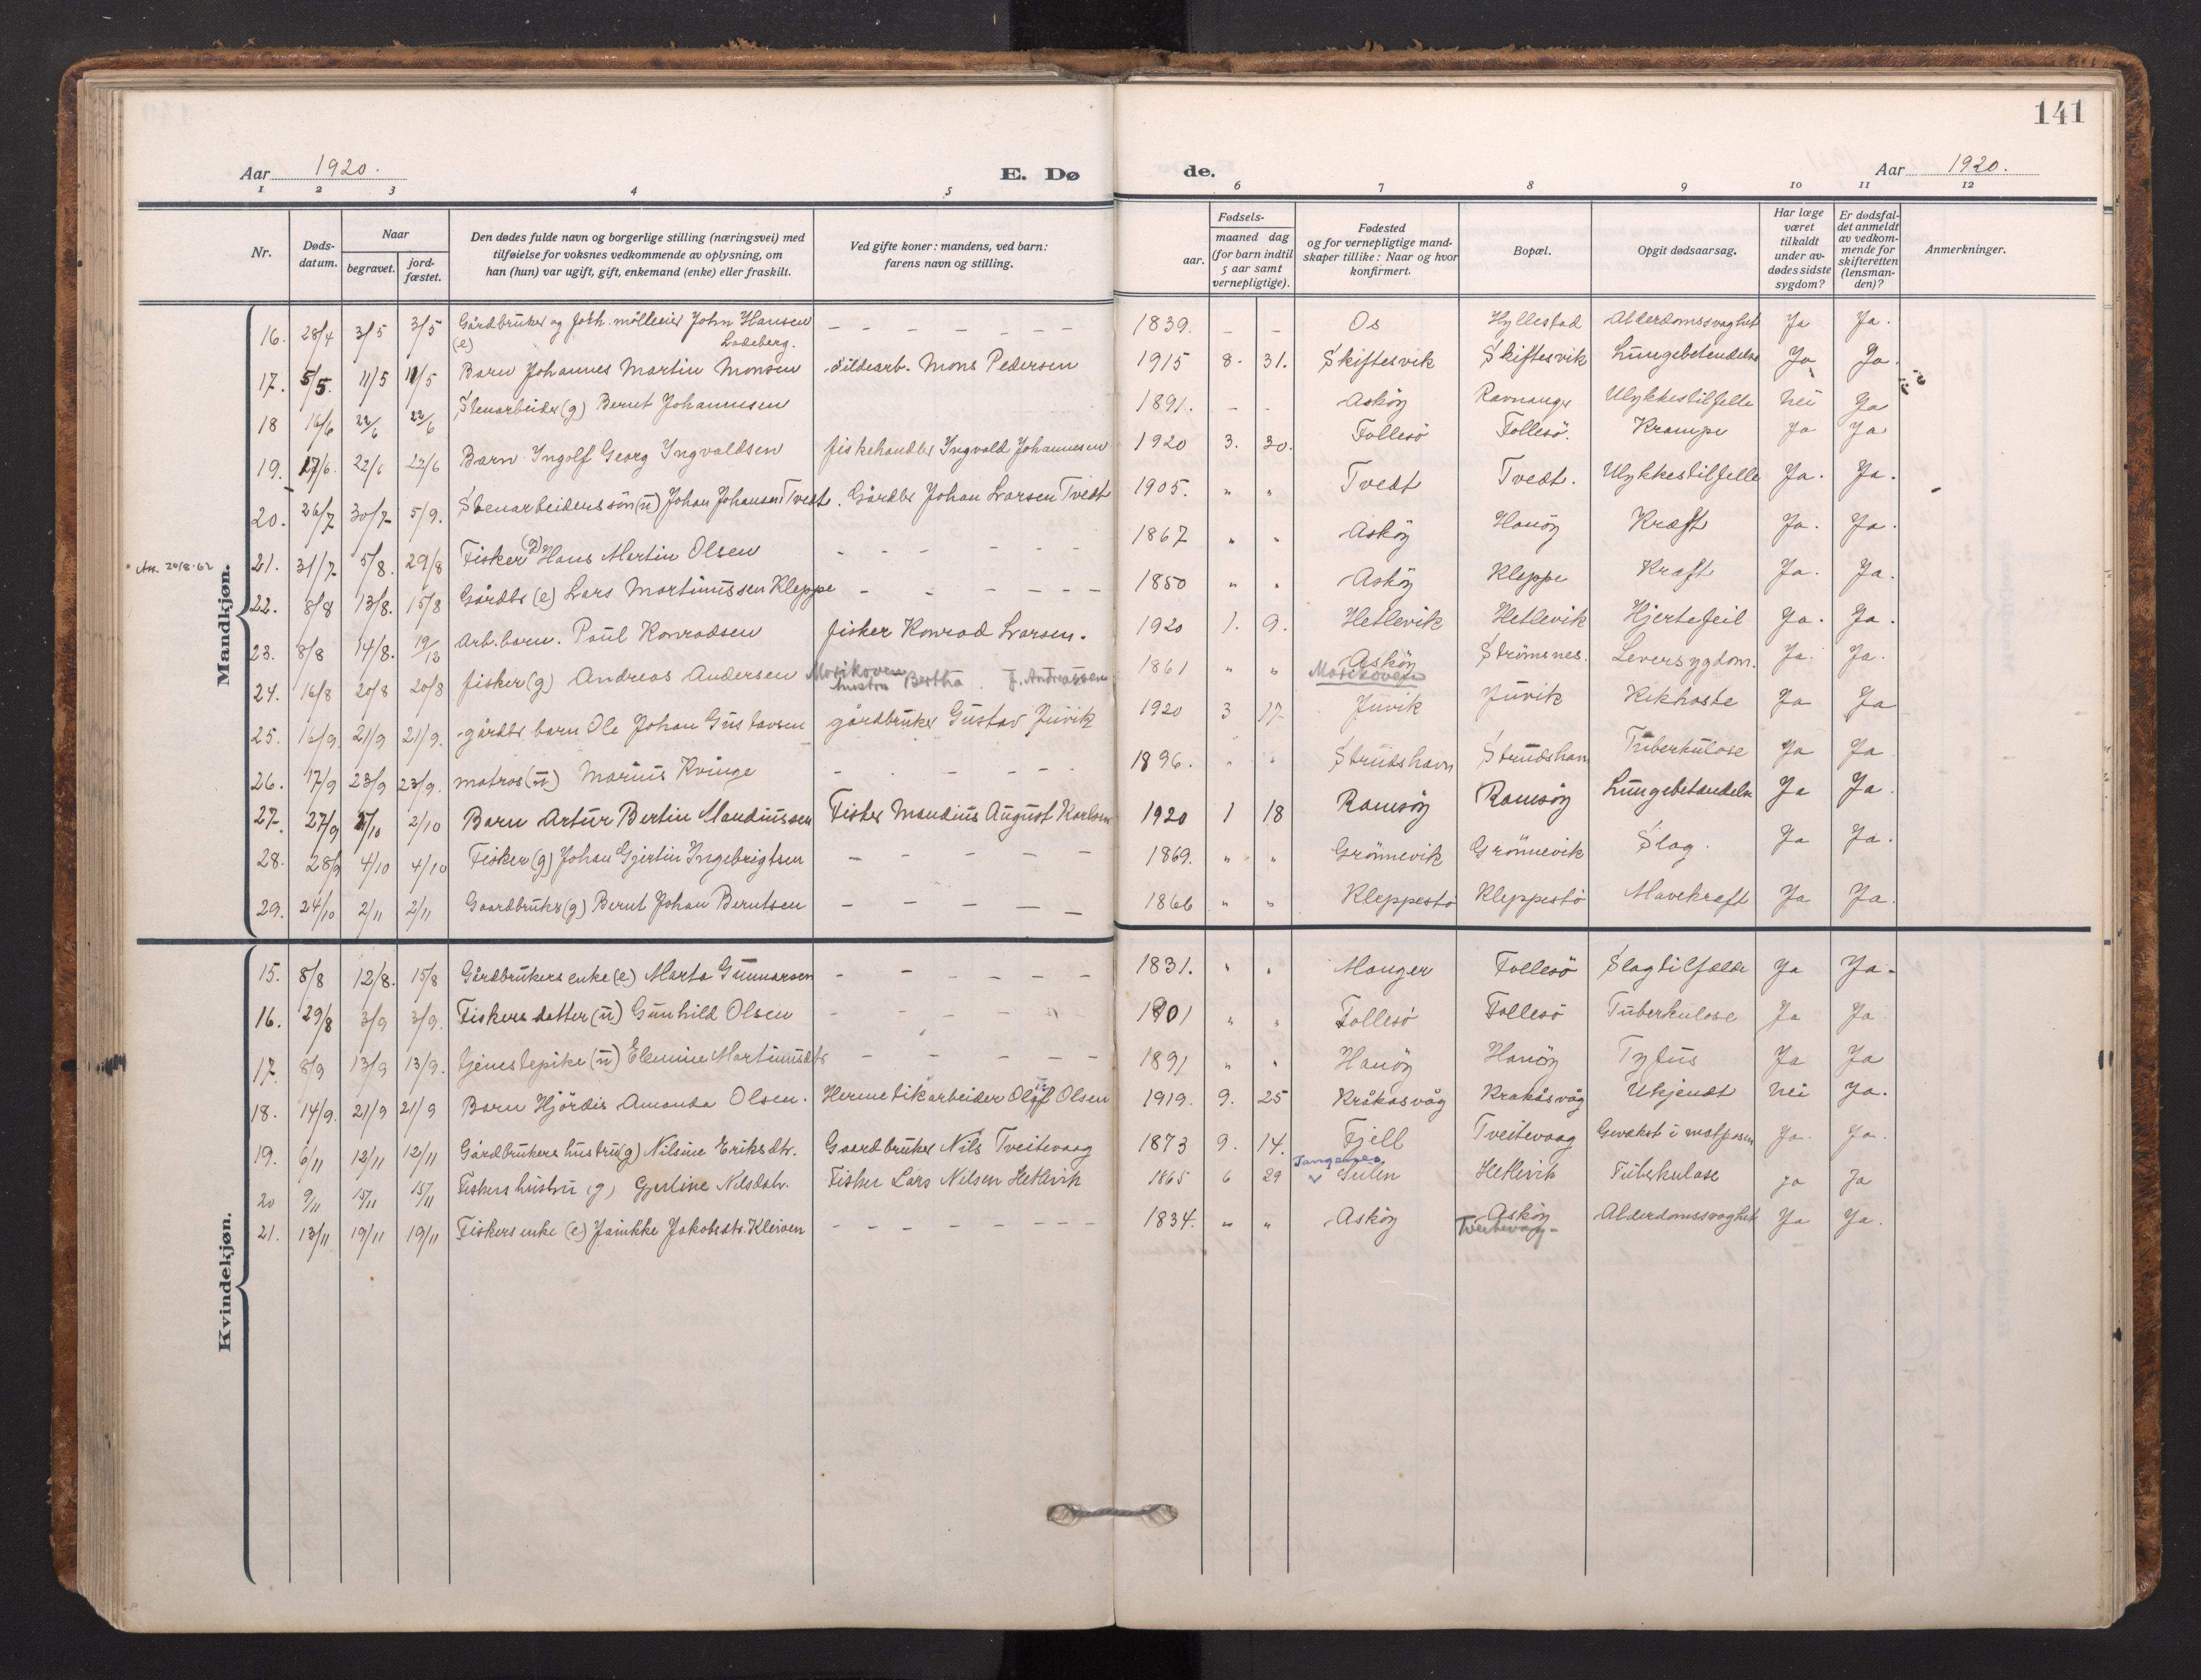 141
Aar 1920.
E. Dø
de.
Aar 1920.
1 2 3 4 5 6 7 8 9 10 11 12
Nr.
Døds-
datum.
Naar
begravet.
jord-
fæstet.
Den dødes fulde navn og borgerlige stilling (næringsvei) med
tilføielse for voksnes vedkommende av oplysning, om
han (hun) var ugift, gift, enkemand (enke) eller fraskilt.
Ved gifte koner: mandens, ved barn:
farens navn og stilling.
Fødsels-
aar.
maaned dag
(for barn indtil
5 aar samt
vernepligtige).
Fødested
og for vernepligtige mand-
skaper tillike: Naar og hvor
konfirmert.
Bopæl.
Opgit dødsaarsag.
Har læge
været
tilkaldt
under av-
dødes sidste
sygdom?
Er dødsfal-
det anmeldt
av vedkom-
mende for
skifteretten
(lensman-
den)?
Anmerkninger.
Mandkjøn.
16. 28/4 3/5 3/5 Gårdbruker og John Hansen - - - - - - - 1839. - - Os Hyllestad Alderdomssvaghet Ja Ja.
(e) Ladeberg.
17. 5/5. 11/5 11/5 Barn Johannes Martin Monsen sildearb. Mons Pedersen 1915 8. 31. Skiftesvik Skiftesvik Lungebetendelse Ja Ja.
18 16/6 22/6 22/6 Stenarbeider (g) Bernt Johannesen 1891. - - Asköy Ravnanger Ulykkestilfelle nei Ja
19. 17/6. 22/6 22/6 Barn Ingolf Georg Ingvaldsen fiskehandler Ingvald Johannesen 1920 3. 30. Follesö Follesö. Krampe Ja Ja
20. 26/7 30/7 5/9. Stenarbeiders sön (u) Johan Johansen Tvedt. Gårdbr Johan Larsen Tvedt 1905. " " Tvedt Tvedt. Ulykkestilfelle Ja. Ja.
Att. 20/8-62 21. 31/7 5/8. 29/8 Fisker (g) Hans Martin Olsen - - - - - - 1867 " " Asköy Hanöy Kræft Ja. Ja.
22. 8/8 13/8. 15/8 Gårdbr (e) Lars Martinussen Kleppe - - - - - - 1850 " " Asköy Kleppe Kræft Ja. Ja.
23. 8/8 14/8. 19/12 Arb. barn. Paul Konradsen fisker Konrad Larsen. 1920 1. 9. Hetlevik Hetlevik Hjertefeil Ja. Ja.
24. 16/8 20/8 20/8 fisker (g) Andreas Andersen Mosikoven hustru Bertha f. Andreassen 1861 " " Asköy Strömsnes. Leversygdom. Ja. Ja.
Mosikoven
25. 16/9. 21/9 21/9. gårdbr barn Ole Johan Gustavsen gårdbruker Gustav Juvik 1920 3 17 Juvik Juvik Kikhoste Ja Ja
26. 17/9 23/9 23/9. matros (u) Marius Kvinge - - - - - 1896. " " Strudshavn Strudshavn Tuberkulose Ja Ja
27. 27/9 2/10 2/10 Barn Artur Bertin Maudiussen Fisker Maudius August Karlsen 1920 1 18 Ramsöy Ramsöy Lungebetændelse Ja Ja.
28. 28/9 4/10 4/10 Fisker (g) Johan Gjertin Ingebrigtsen - - - - - 1869. " " Grönnevik Grönnevik Slag. Ja Ja.
29. 24/10 2/11 2/11 Gaardbruker (g) Bernt Johan Berntsen - - - - - 1866 " " Kleppestö Kleppestö Mavekræft Ja Ja.
Kvindekjøn.
15. 8/8 12/8. 15/8 Gårdbrukers enke (e) Marta Gunnarsen - - - - - - 1831. " " Manger Follesö Slagtilfælde Ja Ja.
16. 29/8 3/9 3/9. Fiskers datter (u) Gunhild Olsen - - - - - - 1901 " " Follesö Follesö Tuberkulose Ja Ja
17. 8/9 13/9 13/9. tjenestepike (u) Elemine Martinusdtr - - - - - 1891 " " Hanöy Hanöy Tyfus Ja Ja
18. 14/9. 21/9 21/9 Barn Hjördis Amanda Olsen. Hermetikarbeider Olaf Olsen 1919. 9. 25 Kråkasvåg Krakåsvåg Ukjendt nei Ja.
19. 6/11 12/11 12/11 Gårdbrukers hustru (g) Nilsine Eriksdtr. Gaardbruker Nils Tveitevaag 1873 9. 14. Fjell Tveitevaag Gevækst i matposen Ja. Ja.
20 9/11 15/11 15/11 Fiskers hustru (g) Gjertine Nilsdatr. Fisker Lars Nilsen Hetlevik 1865 6 29 Sulen Hetlevik Tuberkulose Ja Ja
21. 13/11 19/11 19/11 Fiskers enke (e) Jannikke Jakobsdtr. Kleiven - - - - - - - 1834. " " Asköy Asköy Alderdomssvaghet Ja Ja.
Tveitevåg